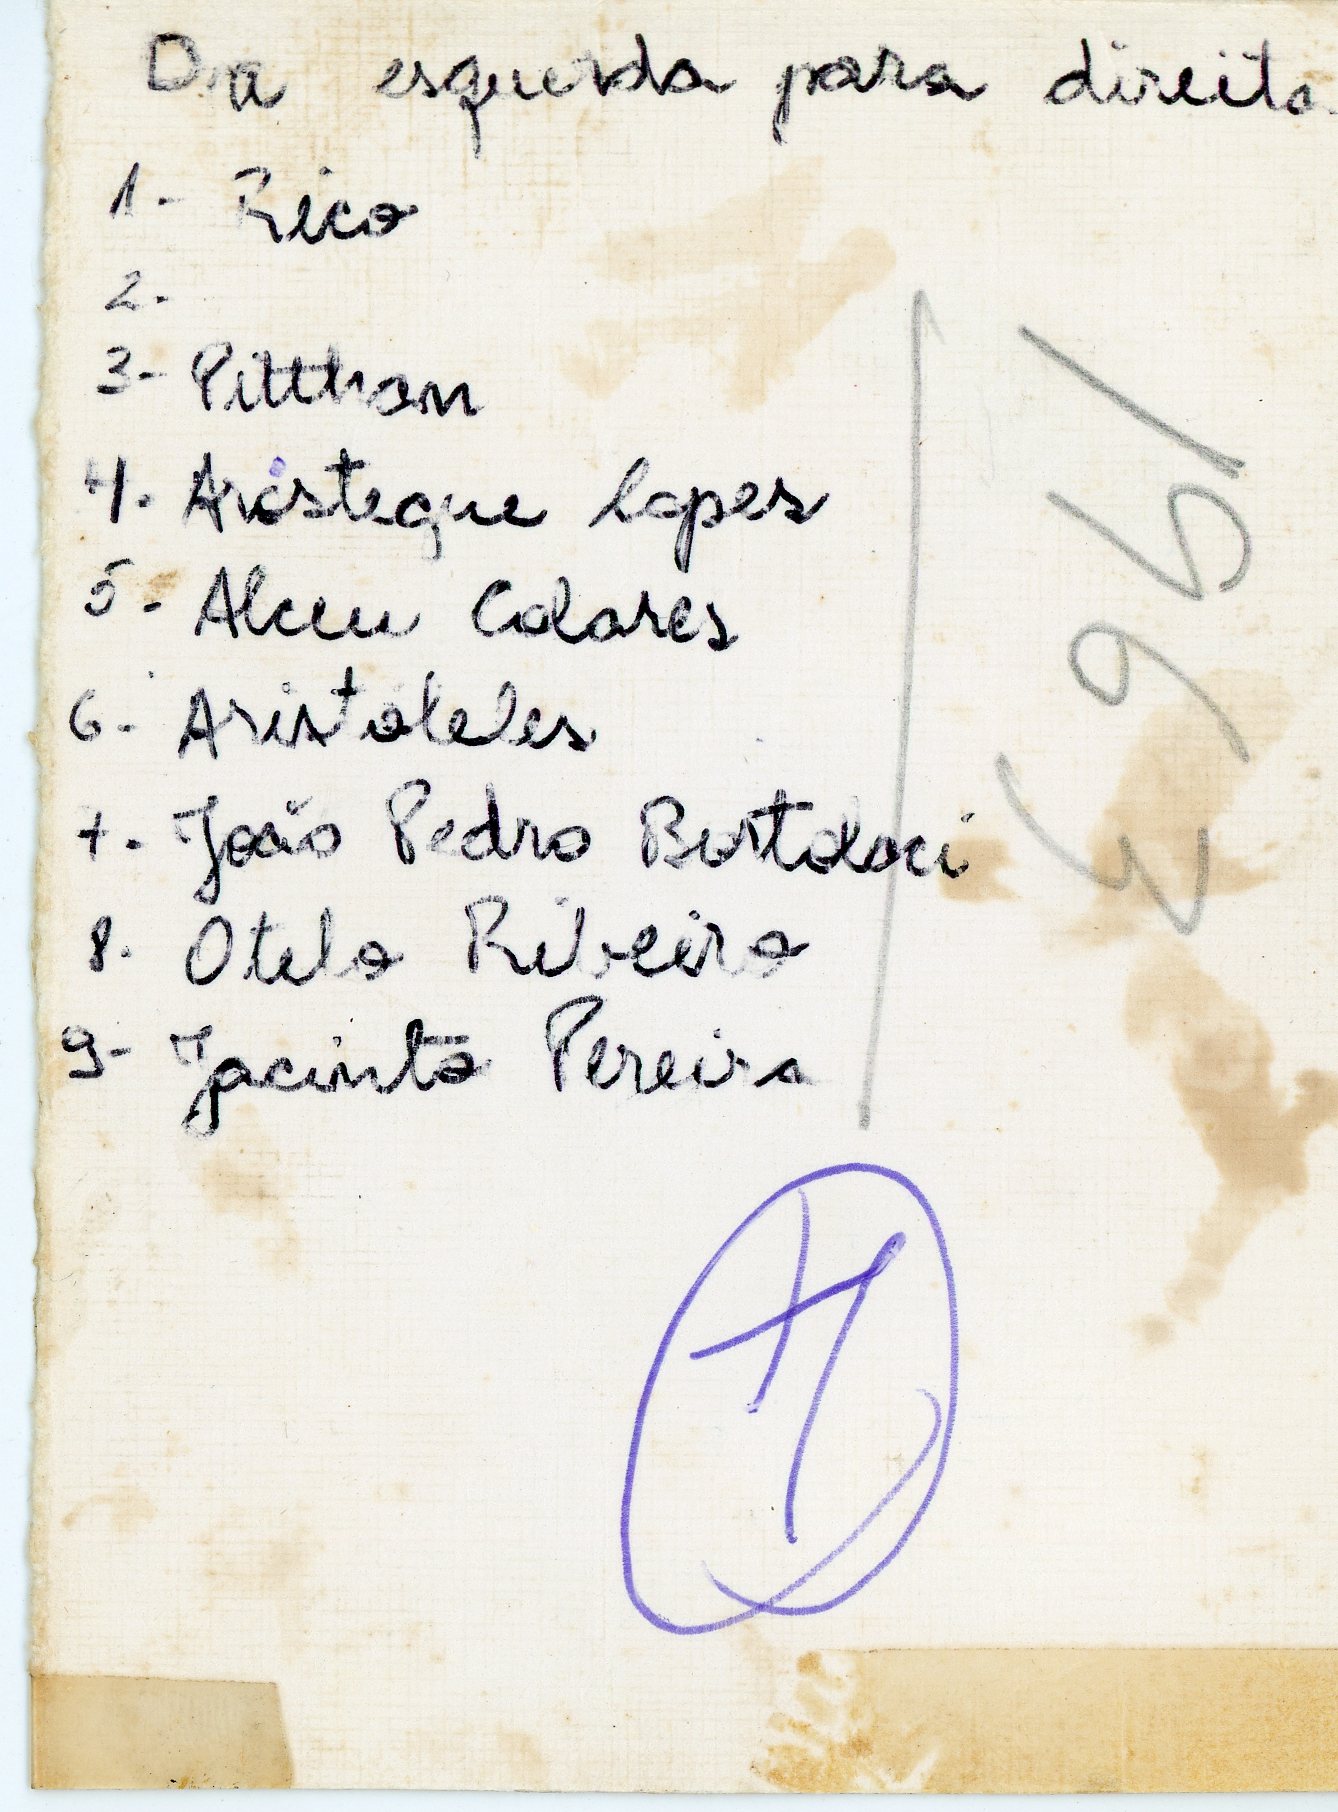 Da esquerda para direita
1- Rico
2-
3- Pitthan
4- Aristegue Lopes
5- Alceu Colares
6- Aristóteles
7- João Pedro Bortoloci
8- Otelo Ribeiro
9- Jacinto Pereira
1963